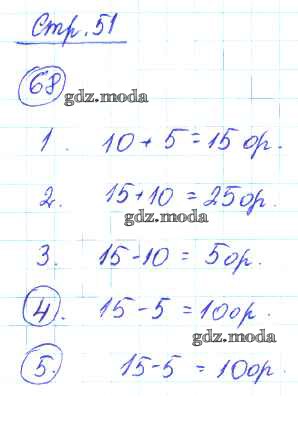 Стр. 51
68
gdz.moda
1. 10 + 5 = 15 ор.
2. 15 + 10 = 25 ор.
gdz.moda
3. 15 - 10 = 5 ор.
4. 15 - 5 = 10 ор.
gdz.moda
5. 15 - 5 = 10 ор.